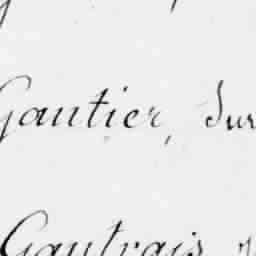 Gautier, Sur
Gautrais